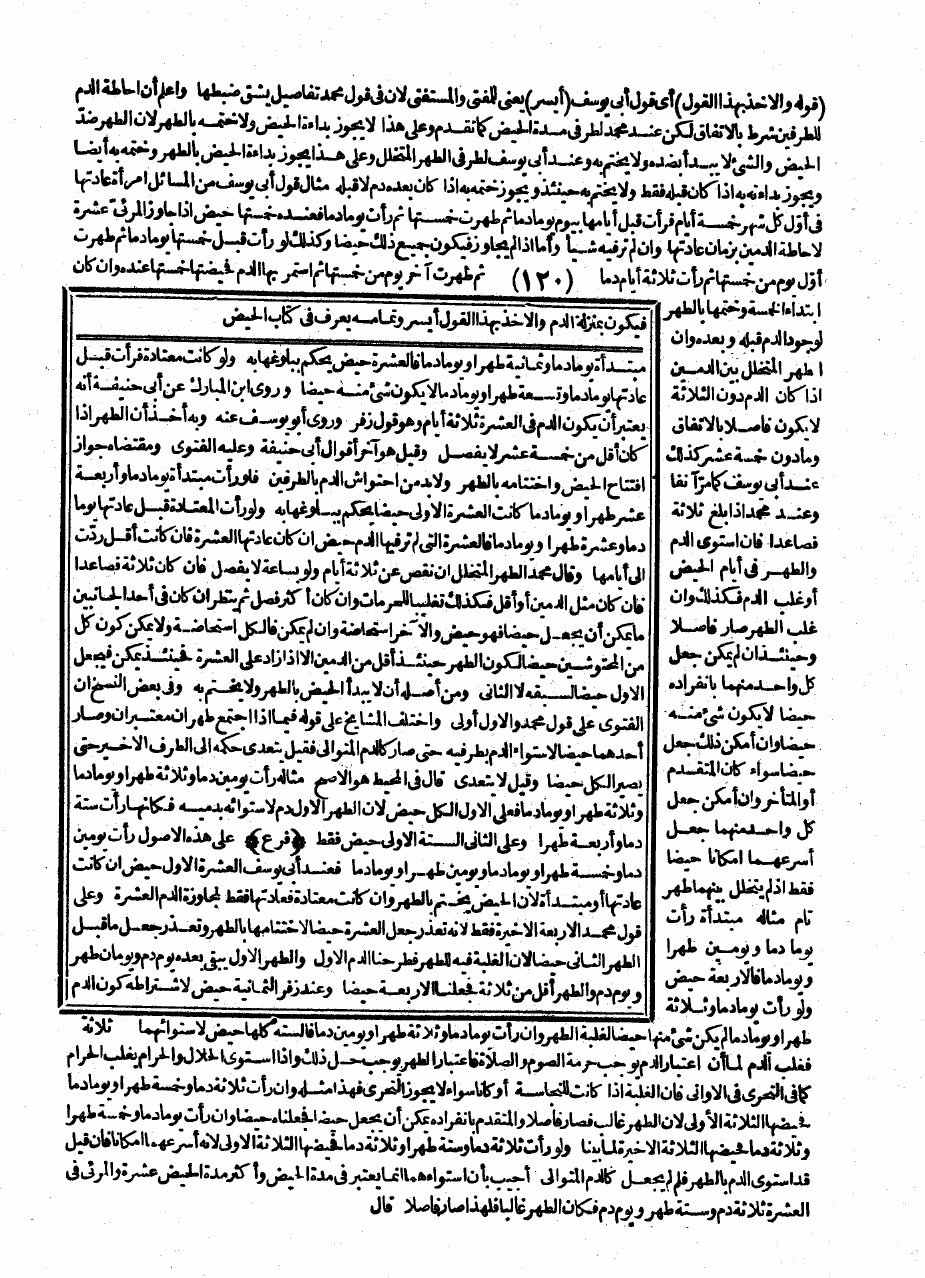 (قوله والاخذ بهذا القول) أى قول أبى يوسف (أيسر) يعنى للمفتى والمستفتى لان فى قول محمد تفاصيل يشق ضبطها واعلم أن احاطة الدم
للطرفين شرط بالاتفاق لكن عند محمد لطرفى مدة الحيض كما تقدم وعلى هذا لا يجوز بداءة الحيض ولا ختمه بالطهر لان الطهر ضد
الحيض والشئ لا يبدأ بضده ولا يختم به وعند أبى يوسف لطرفى الطهر المتخلل وعلى هذا يجوز بداءة الحيض بالطهر وختمه به أيضا
ويجوز بداءته به اذا كان قبله فقط ولا يختم به حينئذ ويجوز ختمه به اذا كان بعده دم لا قبله مثال قول أبى يوسف من المسائل امرأة عادتها
فى أول كل شهر خمسة أيام فرأت قبل أيامها بيوم يوما دما ثم طهرت خمستها ثم رأت يوما دما فعنده خمستها حيض اذا جاوز المرئى عشرة
لاحاطة الدمين بزمان عادتها وان لم ترفيه شيأ وأما اذا لم يجاوز فيكون جميع ذلك حيضا وكذلك لو رأت قبل خمستها يوما دما ثم طهرت
أول يوم من خمستها ثم رأت ثلاثة أيام دما (١٢٠) ثم طهرت آخر يوم من خمستها ثم استمر بها الدم فحيضتها خمستها عنده وان كان
ابتداء الخمسة وختمها بالطهر
لوجود الدم قبله وبعده وان
الطهر المتخلل بين الدمين
اذا كان الدم دون الثلاثة
لا يكون فاصلا بالاتفاق
وما دون خمسة عشر كذلك
عند أبى يوسف كما مر آنفا
وعند محمد اذا بلغ ثلاثة
فصاعدا فان استوى الدم
والطهر فى أيام الحيض
أو غلب الدم فكذلك وان
غلب الطهر صار فاصلا
وحينئذ ان لم يكن جعل
كل واحد منهما بانفراده
حيضا لا يكون شئ منه
حيضا وان أمكن ذلك جعل
حيضا سواء كان المتقدم
أو المتأخر وان أمكن جعل
كل واحد منهما جعل
أسرعهما امكانا حيضا
فقط اذ لم يتخلل بينهما طهر
تام مثاله مبتدأة رأت
يوما دما ويومين طهرا
ويوما دما فالاربعة حيض
ولو رأت يوما دما وثلاثة
فيكون بمنزلة الدم والاخذ بهذا القول أيسر وتمامه يعرف فى كتاب الحيض
مبتدأة يوما دما وثمانية طهرا ويوما دما فالعشرة حيض يحكم ببلوغها به ولو كانت معتادة فرأت قبل
عادتها يوما دما وتسعة طهرا ويوما دما لا يكون شئ منه حيضا وروى ابن المبارك عن أبى حنيفة أنه
يعتبر أن يكون الدم فى العشرة ثلاثة أيام وهو قول زفر وروى أبو يوسف عنه وبه أخذ أن الطهر اذا
كان أقل من خمسة عشر لا يفصل وقيل هو آخر أقوال أبى حنيفة وعليه الفتوى ومقتضاه جواز
افتتاح الحيض واختتامه بالطهر ولا بد من احتواش الدم بالطرفين فلو رأت مبتدأة يوما دما وأربعة
عشر طهرا ويوما دما كانت العشرة الاولى حيضا يحكم ببلوغها به ولو رأت المعتادة قبل عادتها يوما
دما وعشرة طهرا ويوما دما فالعشرة التى لم ترفيها الدم حيض ان كان عادتها العشرة فان كانت أقل ردت
الى أيامها وقال محمد الطهر المتخلل ان نقص عن ثلاثة أيام ولو بساعة لا يفصل فان كان ثلاثة فصاعدا
فان كان مثل الدمين أو أقل فكذلك تغليبا للحرمات وان كان أكثر فصل ثم ينظر ان كان فى أحد الجانبين
ما يمكن أن يجعل حيضا فهو حيض والآخر استحاضة وان لم يمكن فالكل استحاضة ولا يمكن كون كل
من المحتوشين حيضا لكون الطهر حينئذ أقل من الدمين الا اذا زاد على العشرة فحينئذ يمكن فيجعل
الاول حيضا لسبقه لا الثانى ومن أصله أن لا يبدأ الحيض بالطهر ولا يختم به وفى بعض النسخ ان
الفتوى على قول محمد والاول أولى واختلف المشايخ على قوله فيما اذا اجتمع طهران معتبران وصار
أحدهما حيضا لاستواء الدم بطرفيه حتى صار كالدم المتوالى فقيل يتعدى حكمه الى الطرف الاخير حتى
يصير الكل حيضا وقيل لا يتعدى قال فى المحيط هو الاصح مثاله رأت يومين دما وثلاثة طهرا ويوما دما
وثلاثة طهرا ويوما دما فعلى الاول الكل حيض لان الطهر الاول دم لاستوائه بدميه فكأنها رأت ستة
دما وأربعة طهرا وعلى الثانى الستة الاولى حيض فقط ﴿فرع﴾ على هذه الاصول رأت يومين
دما وخمسة طهرا ويوما دما ويومين طهرا ويوما دما فعند أبى يوسف العشرة الاول حيض ان كانت
عادتها أو مبتدأة لان الحيض يختم بالطهر وان كانت معتادة فعادتها فقط لمجاوزة الدم العشرة وعلى
قول محمد الاربعة الاخيرة فقط لانه تعذر جعل العشرة حيضا لاختتامها بالطهر وتعذر جعل ما قبل
الطهر الثانى حيضا لان الغلبة فيه للطهر فطرحنا الدم الاول والطهر الاول يبقى بعده يوم دم ويومان طهر
ويوم دم والطهر أقل من ثلاثة فجعلنا الاربعة حيضا وعند زفر الثمانية حيض لاشتراطه كون الدم
طهرا ويوما دما لم يكن شئ منها حيضا لغلبة الطهر وان رأت يوما دما وثلاثة طهرا ويومين دما فالستة كلها حيض لاستوائهما ثلاثة
فغلب الدم لما أن اعتبار الدم يوجب حرمة الصوم والصلاة فاعتبار الطهر يوجب حل ذلك واذا استوى الحلال والحرام يغلب الحرام
كما فى التحرى فى الاوانى فان الغلبة اذا كانت للنجاسة أو كانا سواء لا يجوز التحرى فهذا مثله وان رأت ثلاثة دما وخمسة طهرا ويوما دما
فحيضها الثلاثة الأولى لان الطهر غالب فصار فاصلا والمتقدم بانفراده يمكن أن يجعل حيضا فجعلناه حيضا وان رأت يوما دما وخمسة طهرا
وثلاثة دما فحيضها الثلاثة الاخيرة لما بينا ولو رأت ثلاثة دما وستة طهرا وثلاثة دما فحيضها الثلاثة الاولى لانه أسرعهما امكانا فان قيل
قد استوى الدم بالطهر فلم لم يجعل كالدم المتوالى أجيب بأن استواءهما انما يعتبر فى مدة الحيض وأكثر مدة الحيض عشرة والمرئى فى
العشرة ثلاثة دم وستة طهر ويوم دم فكان الطهر غالبا فلهذا صار فاصلا قال